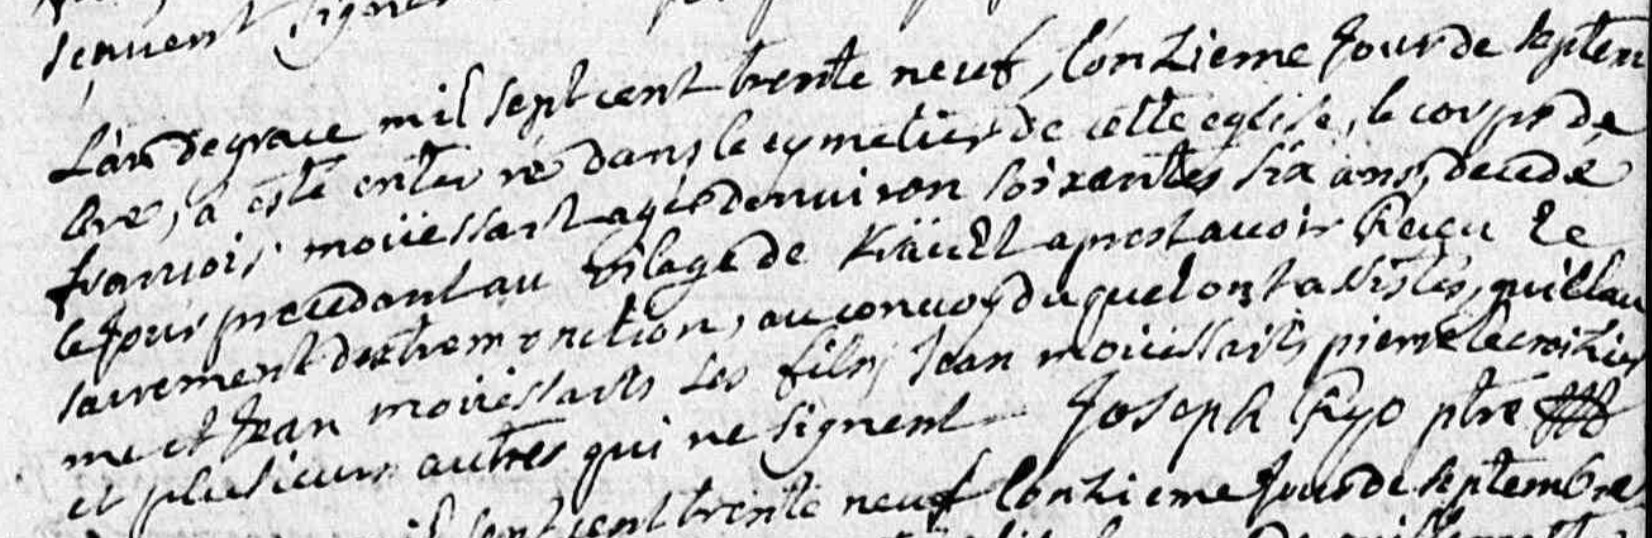 scavent signer
L'an de grace mil sept cent trente neuf, l'onzieme jour de septem
bre, a esté enterré dans le cymetier de cette eglise, le corps de
francois moüessart agé denviron soixantes six ans, decedé
le jour precedant au vilage de aprest avoir Reçu le
sacrement dextremonction, au convoy duquel ont assistés, guillau
me et Jean moüessarts ses fils, Jean moüessarts, pierre lecroizier
et plusieurs autres qui ne signent Joseph Ryo ptre
sept cent trente neuf l'onzieme jour de septembre